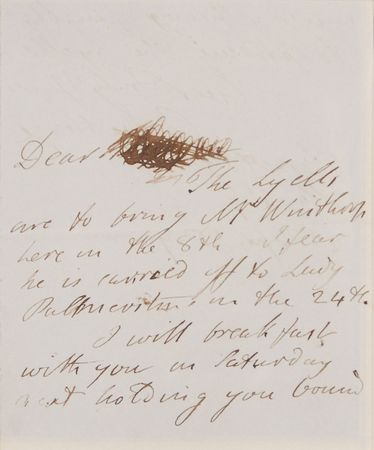 Dear
The Lyells
are to bring Mr Winthrop
here on the 8th I fear
he is carried off to Lady
Palmerston on the 24th.
I will breakfast
with you on Saturday
next holding you bound